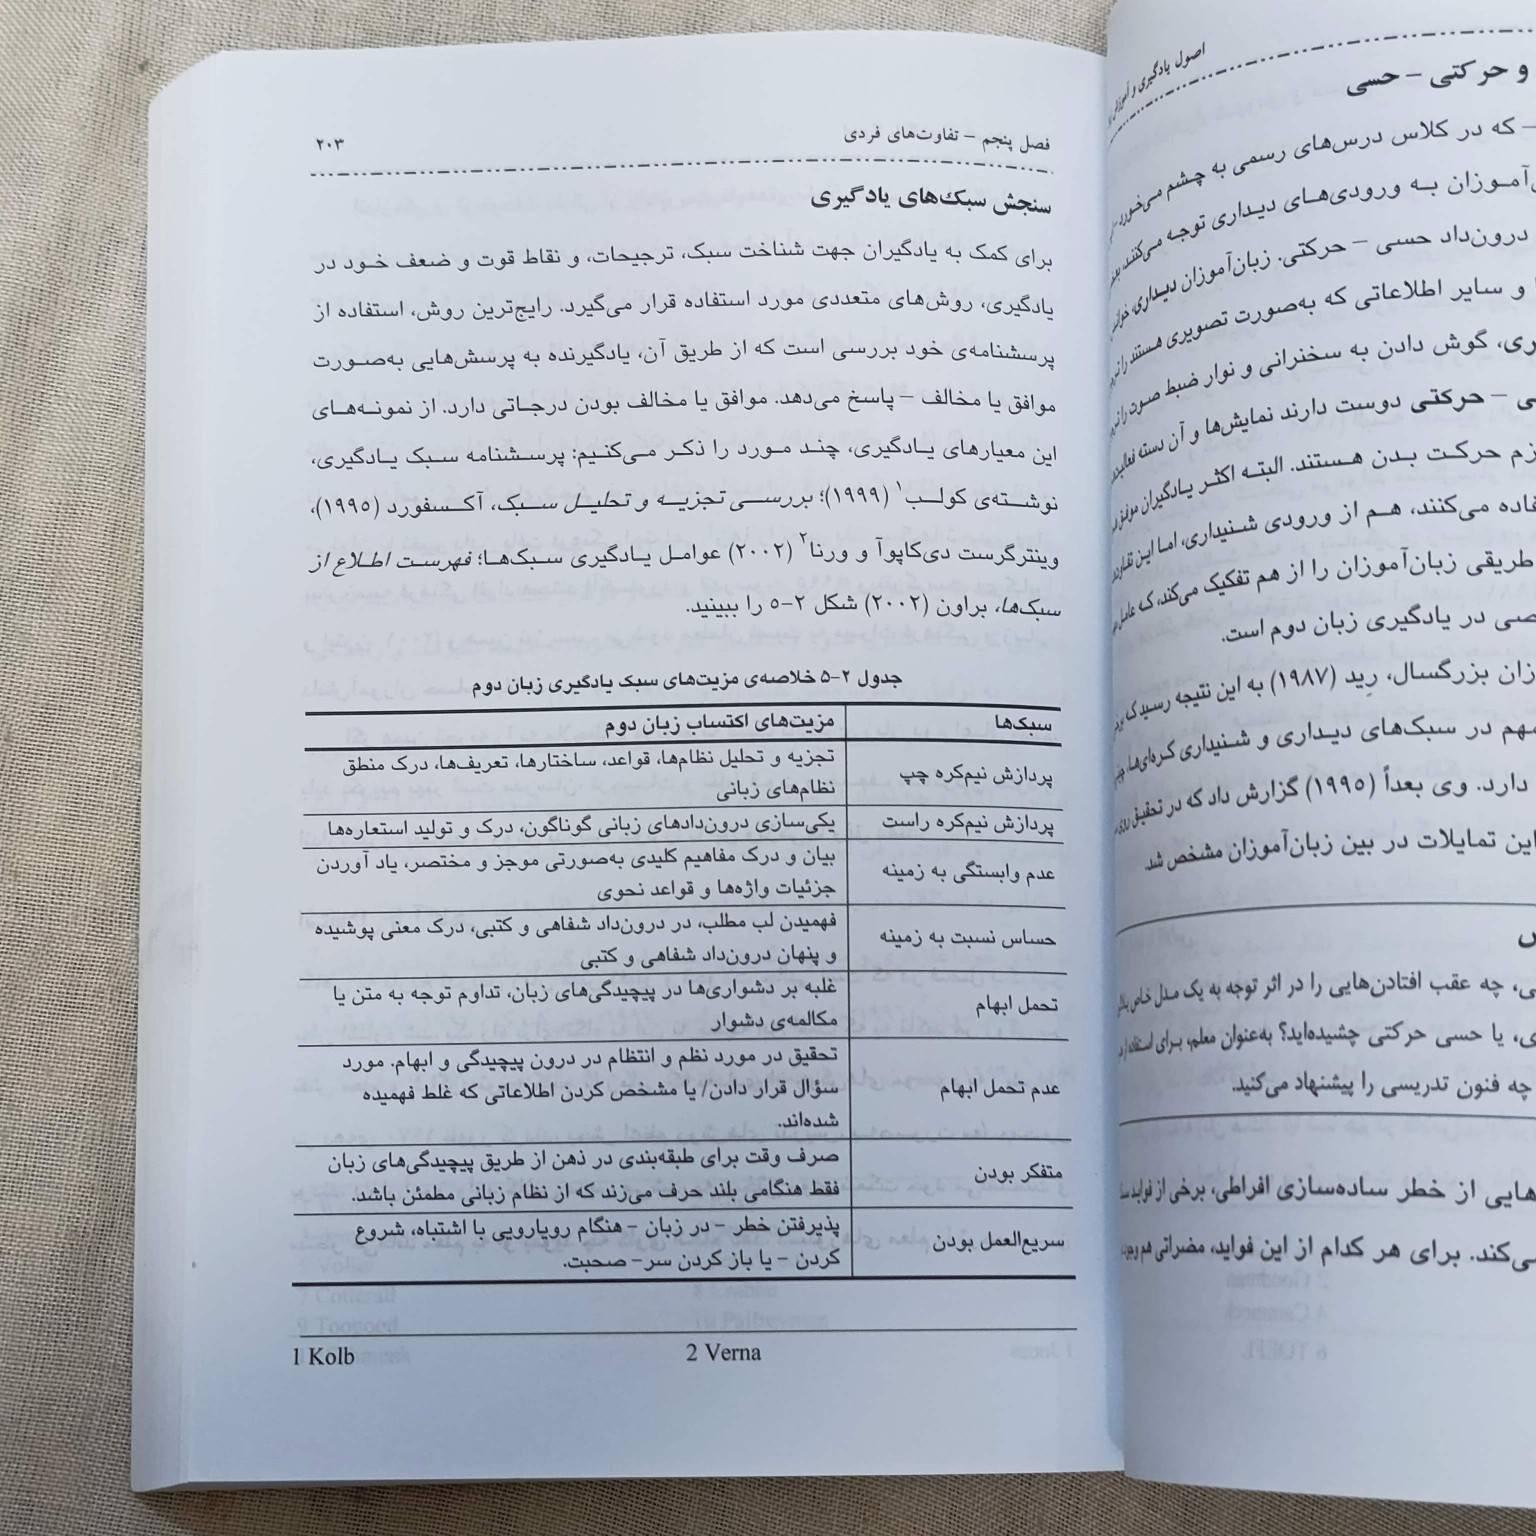 اصول یادگیری و
و حرکتی – حسی
– که در کلاس درس‌های رسمی به چشم می‌خورد
به ورودی‌های دیداری توجه می‌کنند،
درون‌داد حسی – حرکتی. زبان‌آموزان دیداری،
و سایر اطلاعاتی که به‌صورت تصویری هستند را
گوش دادن به سخنرانی و نوار ضبط صوت را
– حرکتی دوست دارند نمایش‌ها و آن دسته
حرکت بدن هستند. البته اکثر یادگیران موفق
می‌کنند، هم از ورودی شنیداری، اما این
طریقی زبان‌آموزان را از هم تفکیک می‌کند، که عامل
در یادگیری زبان دوم است.
بزرگسال، رِید (۱۹۸۷) به این نتیجه رسید که
در سبک‌های دیداری و شنیداری کره‌ای‌ها،
دارد. وی بعداً (۱۹۹۵) گزارش داد که در تحقیق
این تمایلات در بین زبان‌آموزان مشخص شد.
چه عقب افتادن‌هایی را در اثر توجه به یک مدل خاص
یا حسی حرکتی چشیده‌اید؟ به‌عنوان معلم، برای استفاده از
چه فنون تدریسی را پیشنهاد می‌کنید.
از خطر ساده‌سازی افراطی، برخی از فواید
برای هر کدام از این فواید، مضراتی هم
فصل پنجم – تفاوت‌های فردی ۲۰۳
سنجش سبک‌های یادگیری
برای کمک به یادگیران جهت شناخت سبک، ترجیحات، و نقاط قوت و ضعف خود در
یادگیری، روش‌های متعددی مورد استفاده قرار می‌گیرد. رایج‌ترین روش، استفاده از
پرسشنامه‌ی خود بررسی است که از طریق آن، یادگیرنده به پرسش‌هایی به‌صورت
موافق یا مخالف – پاسخ می‌دهد. موافق یا مخالف بودن درجاتی دارد. از نمونه‌های
این معیارهای یادگیری، چند مورد را ذکر می‌کنیم: پرسشنامه سبک یادگیری،
نوشته‌ی کولب۱ (۱۹۹۹)؛ بررسی تجزیه و تحلیل سبک، آکسفورد (۱۹۹۵)،
وینترگرست دی‌کاپوآ و ورنا۲ (۲۰۰۲) عوامل یادگیری سبک‌ها؛ فهرست اطلاع از
سبک‌ها، براون (۲۰۰۲) شکل ۲-۵ را ببینید.
جدول ۲-۵ خلاصه‌ی مزیت‌های سبک یادگیری زبان دوم
سبک‌ها مزیت‌های اکتساب زبان دوم
پردازش نیم‌کره چپ تجزیه و تحلیل نظام‌ها، قواعد، ساختارها، تعریف‌ها، درک منطق
نظام‌های زبانی
پردازش نیم‌کره راست یکی‌سازی درون‌دادهای زبانی گوناگون، درک و تولید استعاره‌ها
عدم وابستگی به زمینه بیان و درک مفاهیم کلیدی به‌صورتی موجز و مختصر، یاد آوردن
جزئیات واژه‌ها و قواعد نحوی
حساس نسبت به زمینه فهمیدن لب مطلب، در درون‌داد شفاهی و کتبی، درک معنی پوشیده
و پنهان درون‌داد شفاهی و کتبی
تحمل ابهام غلبه بر دشواری‌ها در پیچیدگی‌های زبان، تداوم توجه به متن یا
مکالمه‌ی دشوار
عدم تحمل ابهام تحقیق در مورد نظم و انتظام در درون پیچیدگی و ابهام. مورد
سؤال قرار دادن/ یا مشخص کردن اطلاعاتی که غلط فهمیده
شده‌اند.
متفکر بودن صرف وقت برای طبقه‌بندی در ذهن از طریق پیچیدگی‌های زبان
فقط هنگامی بلند حرف می‌زند که از نظام زبانی مطمئن باشد.
سریع‌العمل بودن پذیرفتن خطر –در زبان –هنگام رویارویی با اشتباه، شروع
کردن – یا باز کردن سر– صحبت.
1 Kolb 2 Verna